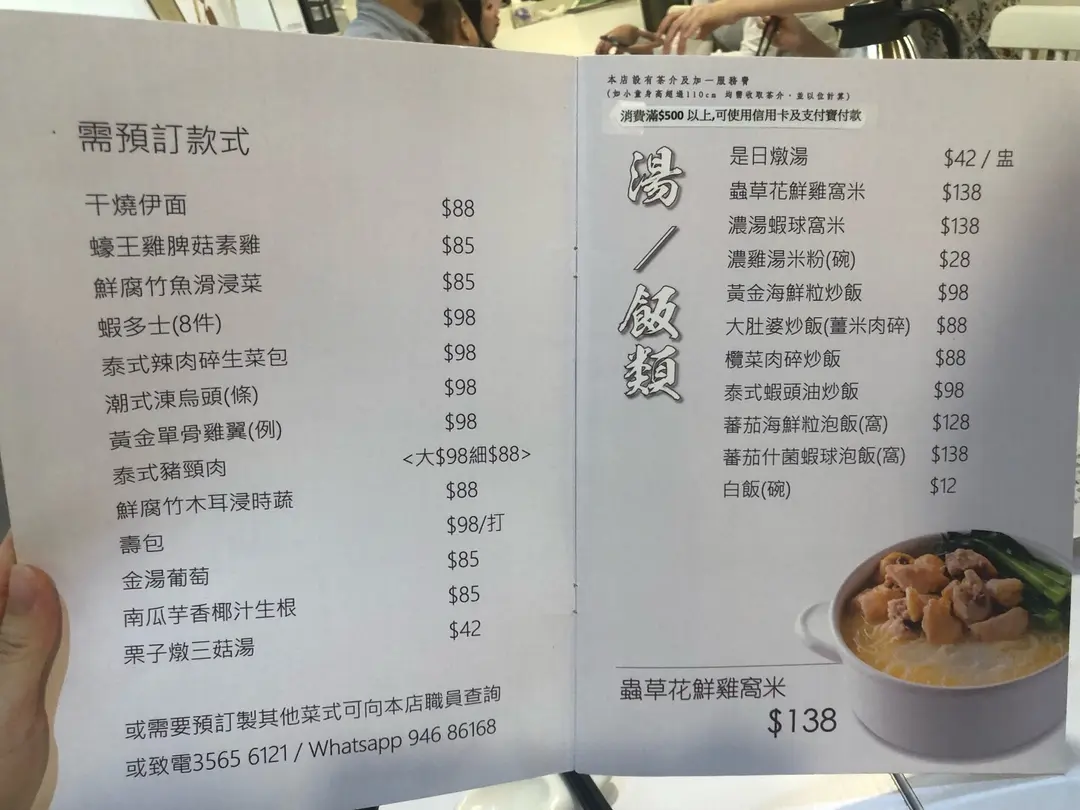 需預訂款式
干燒伊面 $88
蠔王雞脾菇素雞 $85
鮮腐竹魚滑浸菜 $85
蝦多士(8件) $98
泰式辣肉碎生菜包 $98
潮式涷烏頭(條) $98
黃金單骨雞翼(例) $98
泰式豬頸肉 <大$98細$88>
鮮腐竹木耳浸時蔬 $88
壽包 $98/打
金湯葡萄 $85
南瓜芋香椰汁生根 $85
栗子燉三菇湯 $42
或需要預訂製其他菜式可向本店職員查詢
或致電3565 6121 / Whatsapp 946 86168
本店設有茶介及加一服務費
(如小童身高超過110cm 均需收取茶介，並以位計算)
消費滿$500 以上,可使用信用卡及支付寶付款
湯／飯類
是日燉湯 $42 / 盅
蟲草花鮮雞窩米 $138
濃湯蝦球窩米 $138
濃雞湯米粉(碗) $28
黃金海鮮粒炒飯 $98
大肚婆炒飯(薑米肉碎) $88
欖菜肉碎炒飯 $88
泰式蝦頭油炒飯 $98
蕃茄海鮮粒泡飯(窩) $128
蕃茄什菌蝦球泡飯(窩) $138
白飯(碗) $12
蟲草花鮮雞窩米
$138